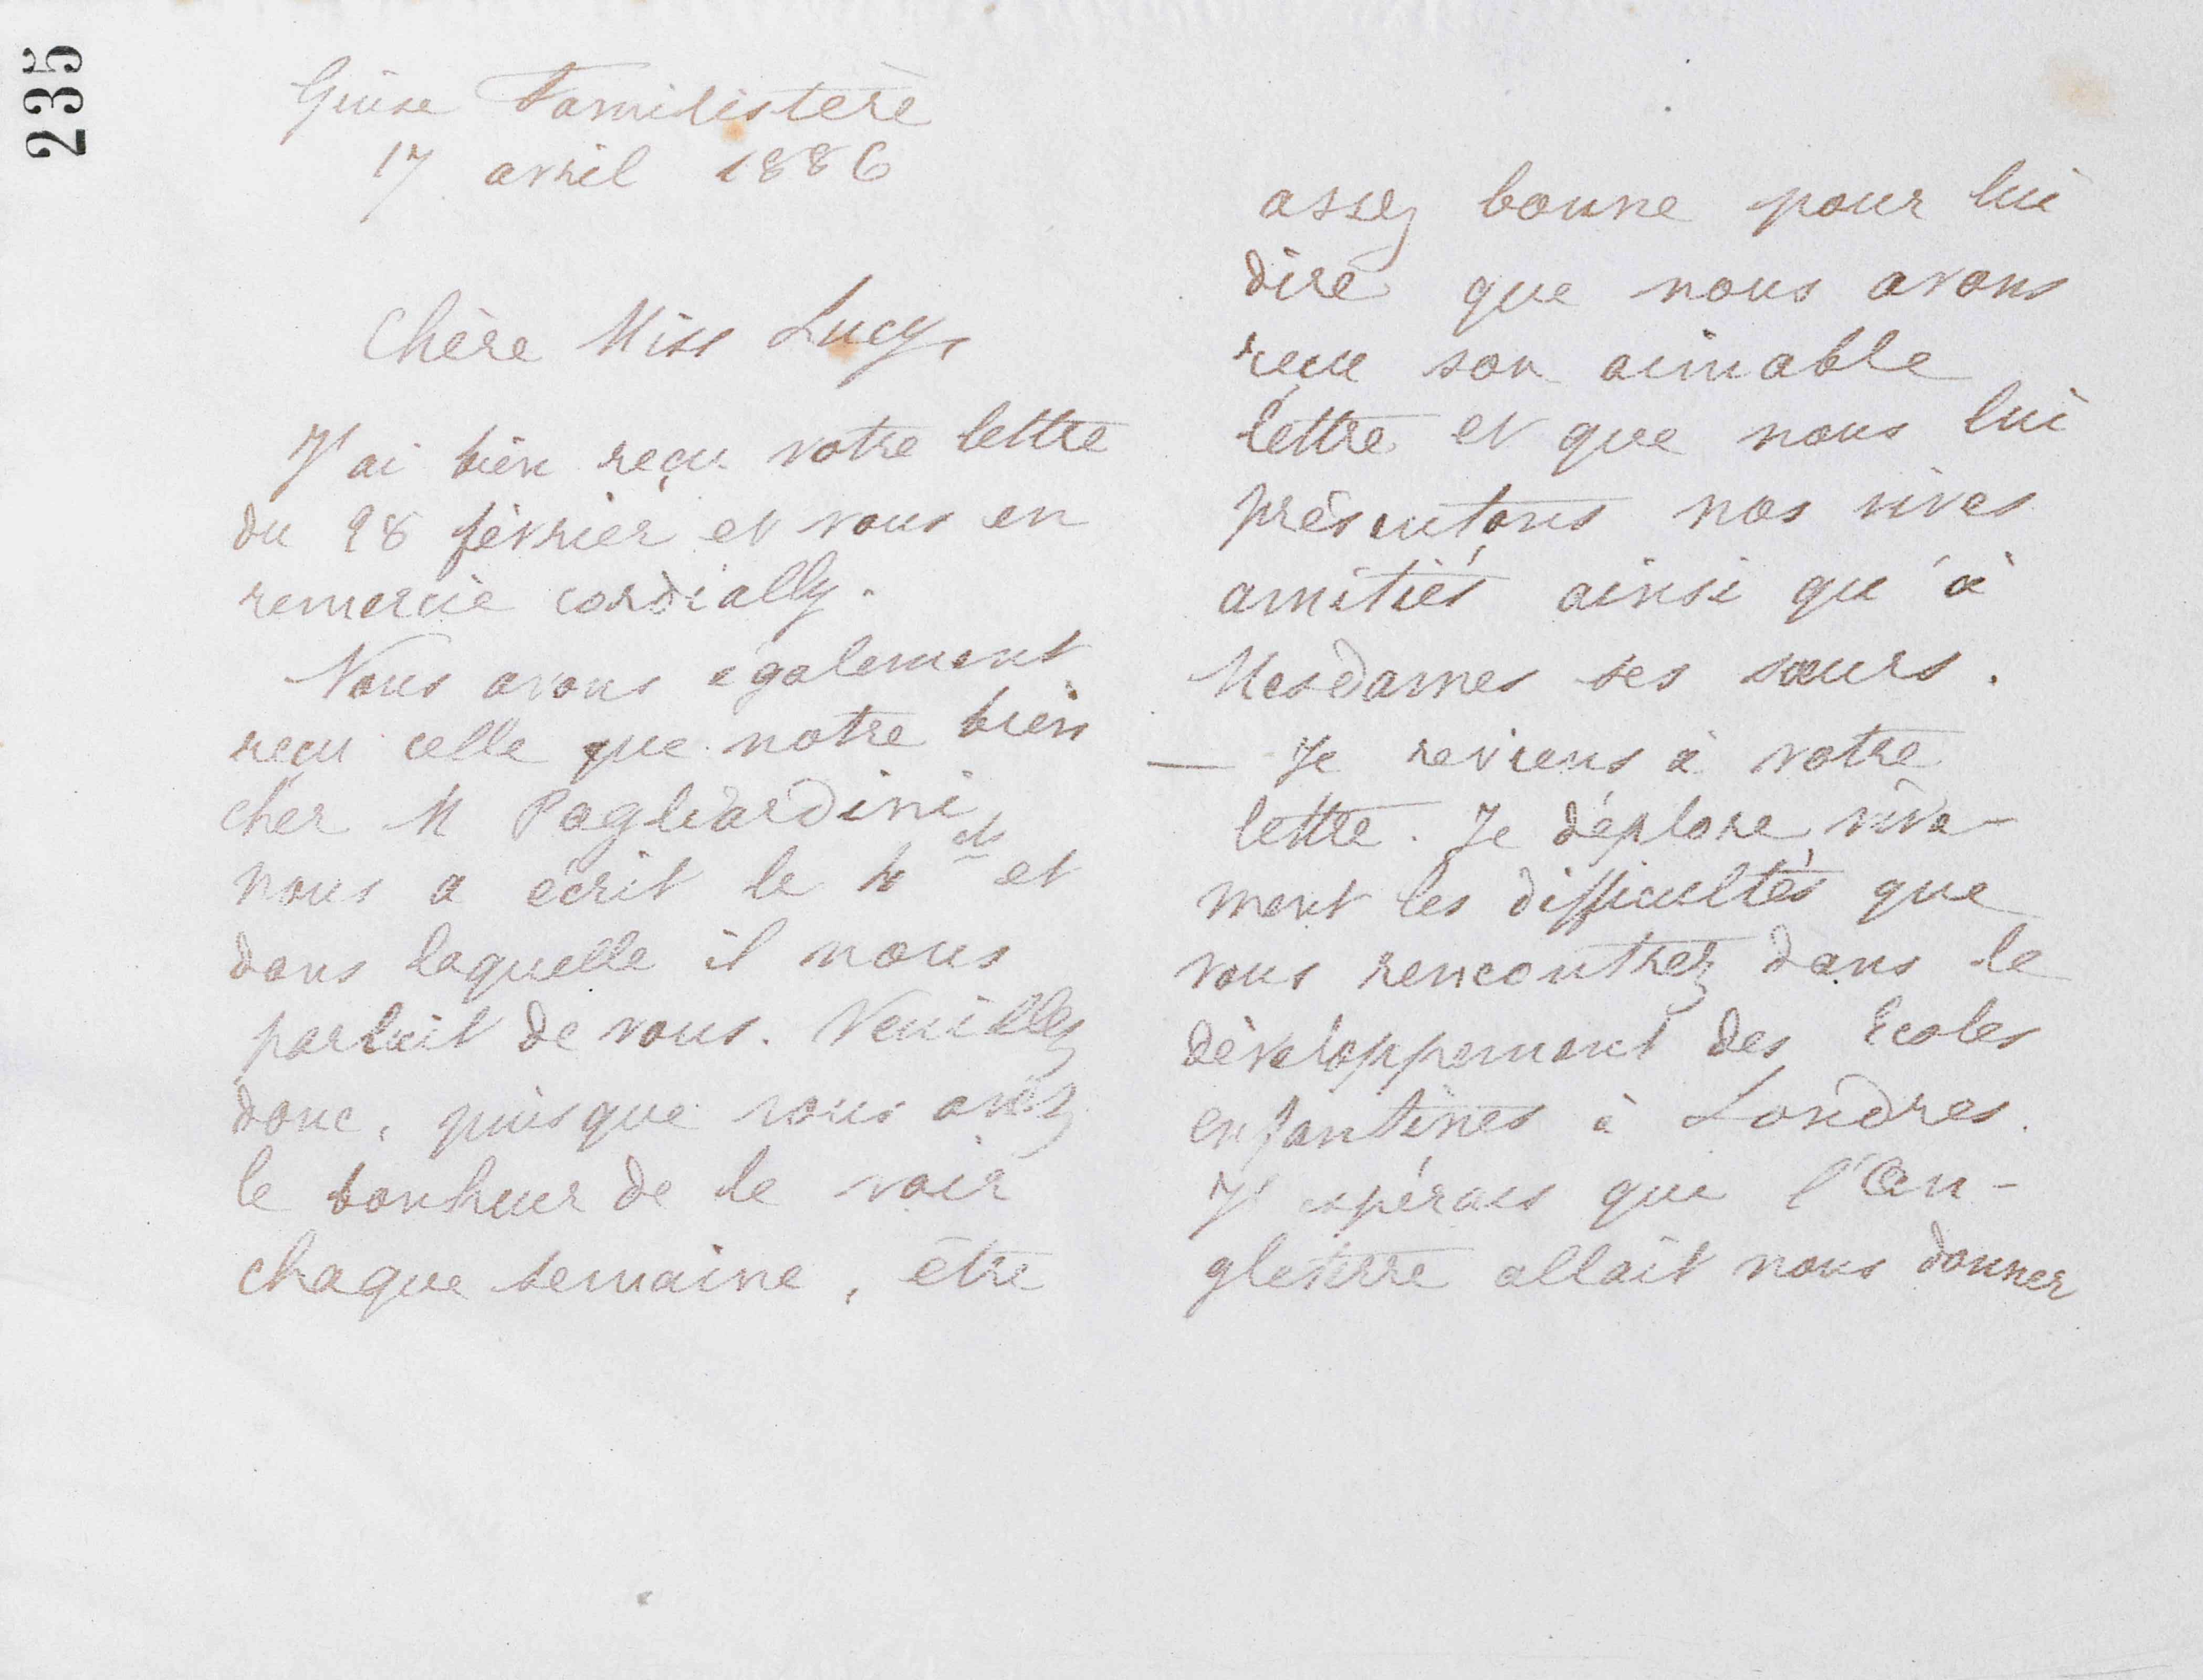 235
Guise Familistère
17 avril 1886
Chère Miss Lucy,
J'ai bien reçu votre lettre
du 28 février et vous en
remercie cordially.
Nous avons également
reçu celle que notre bien
cher M Pagliardini
nous a écrit le 4 ct et
dans laquelle il nous
parlait de vous. Veuillez
donc, puisque vous avez
le bonheur de le voir
chaque semaine, être
assez bonne pour lui
dire que nous avons
reçu son aimable
lettre et que nous lui
présentons nos vives
amitiés ainsi qu'à
Mesdames ses sœurs.
— Je reviens à votre
lettre. Je déplore vive-
ment les difficultés que
vous rencontrez dans le
développement des Ecoles
enfantines à Londres.
J'espérais que l'An-
gleterre allait nous donner